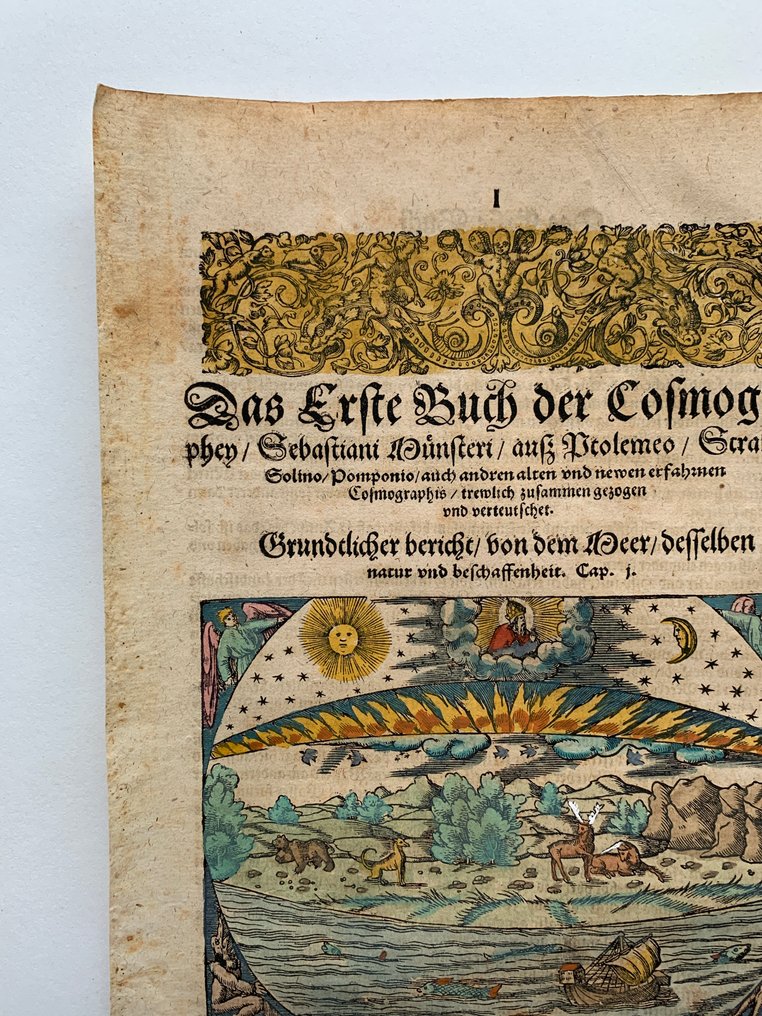 I
Das Erste Buch der Cosmog
phey / Sebastiani Münsteri / auß Ptolemeo / Stra
Solino / Pomponio / auch andren alten vnd newen erfahrnen
Cosmographis / trewlich zusammen gezogen
vnd verteutschet.
Grundtlicher bericht / von dem Meer / desselben
natur vnd beschaffenheit. Cap. j.